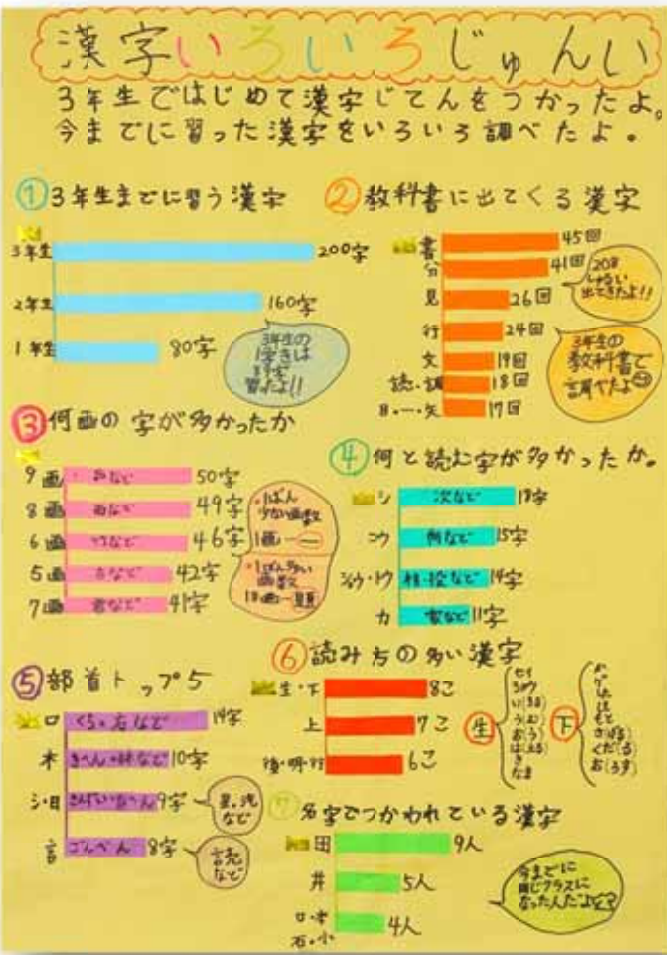 漢字いろいろじゅんい
3年生ではじめて漢字じてんをつかったよ。
今までに習った漢字をいろいろ調べたよ。
①3年生までに習う漢字
3年生 200字
2年生 160字
1年生 80字
3年生の
1学きは
習ったよ!!
②教科書に出てくる漢字
書 45回
分 41回
見 26回
行 24回
文 19回
読・調 18回
日・一・矢 17回
出てきたよ!!
3年生の
教科書で
調べたよ
③何画の字が多かったか
9画 など 50字
8画 など 49字
6画 など 46字
5画 など 42字
7画 など 41字
・1ばん
少ない画数
1画…一
・1ばん多い
画数
18画…題
④何と読む字が多かったか。
シ 次など 18字
コウ など 15字
など 14字
カ 家など 11字
⑤部首トップ5
口 くち。右など 14字
木 きへん・林など 10字
9字
など
言 ごんべん 8字
読
など
⑥読み方の多い漢字
生・下 8こ
上 7こ
後・明・行 6こ
生
セイ
ショウ
い(きる)
う(む)
お(う)
は(える)
き
なま
下
カ
ゲ
した
しも
もと
さ(げる)
くだ(る)
お(ろす)
⑦名字でつかわれている漢字
田 9人
井 5人
4人
石・小
今までに
同じクラスに
なった人だよ